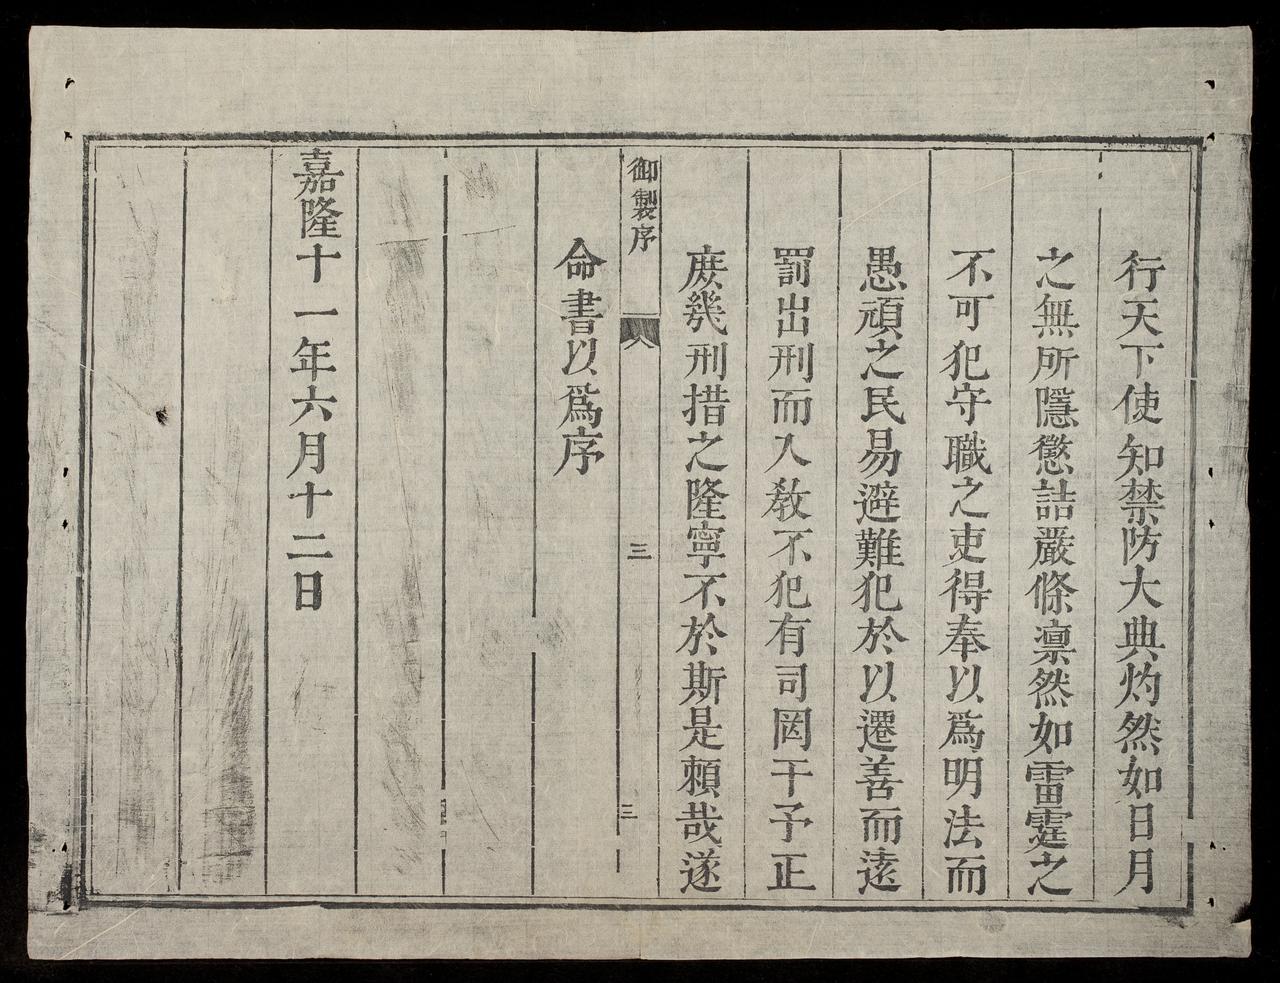 行天下使知禁防大典灼然如日月
之無所隱懲詰嚴條凛然如雷霆之
不可犯守職之吏得奉以爲明法而
愚頑之民易避難犯於以遷善而遠
罰出刑而入教不犯有司罔干予正
庶幾刑措之隆寧不於斯是賴哉遂
御製序
三
三
命書以爲序
嘉隆十一年六月十二日